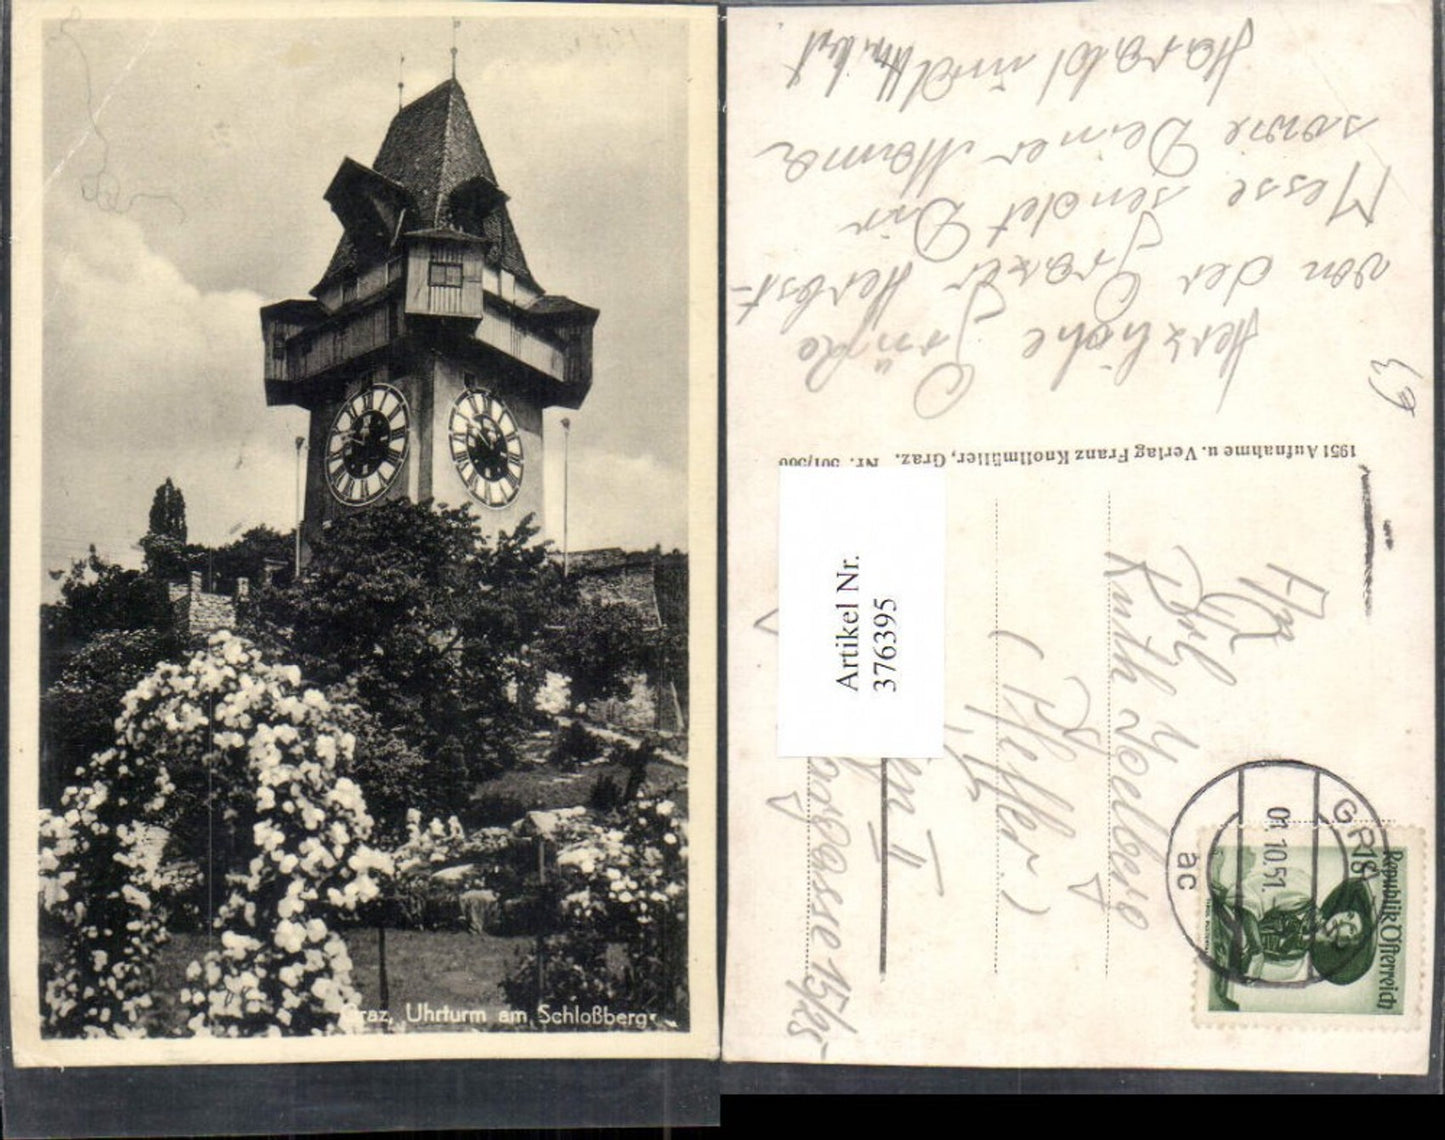 Graz, Uhrturm am Schloßberg
Herzliche Grüße
von der Grazer Herbst-
Messe sendet Dir
sowie Deiner Mama
Harald und
1951 Aufnahme u. Verlag Franz Knollmüller, Graz. Nr. 501/560
Artikel Nr.
376395
An
Frl.
Ruth
(Pfeffer)
II
gasse 15
GRAZ
01.10.51
ac
Republik Österreich